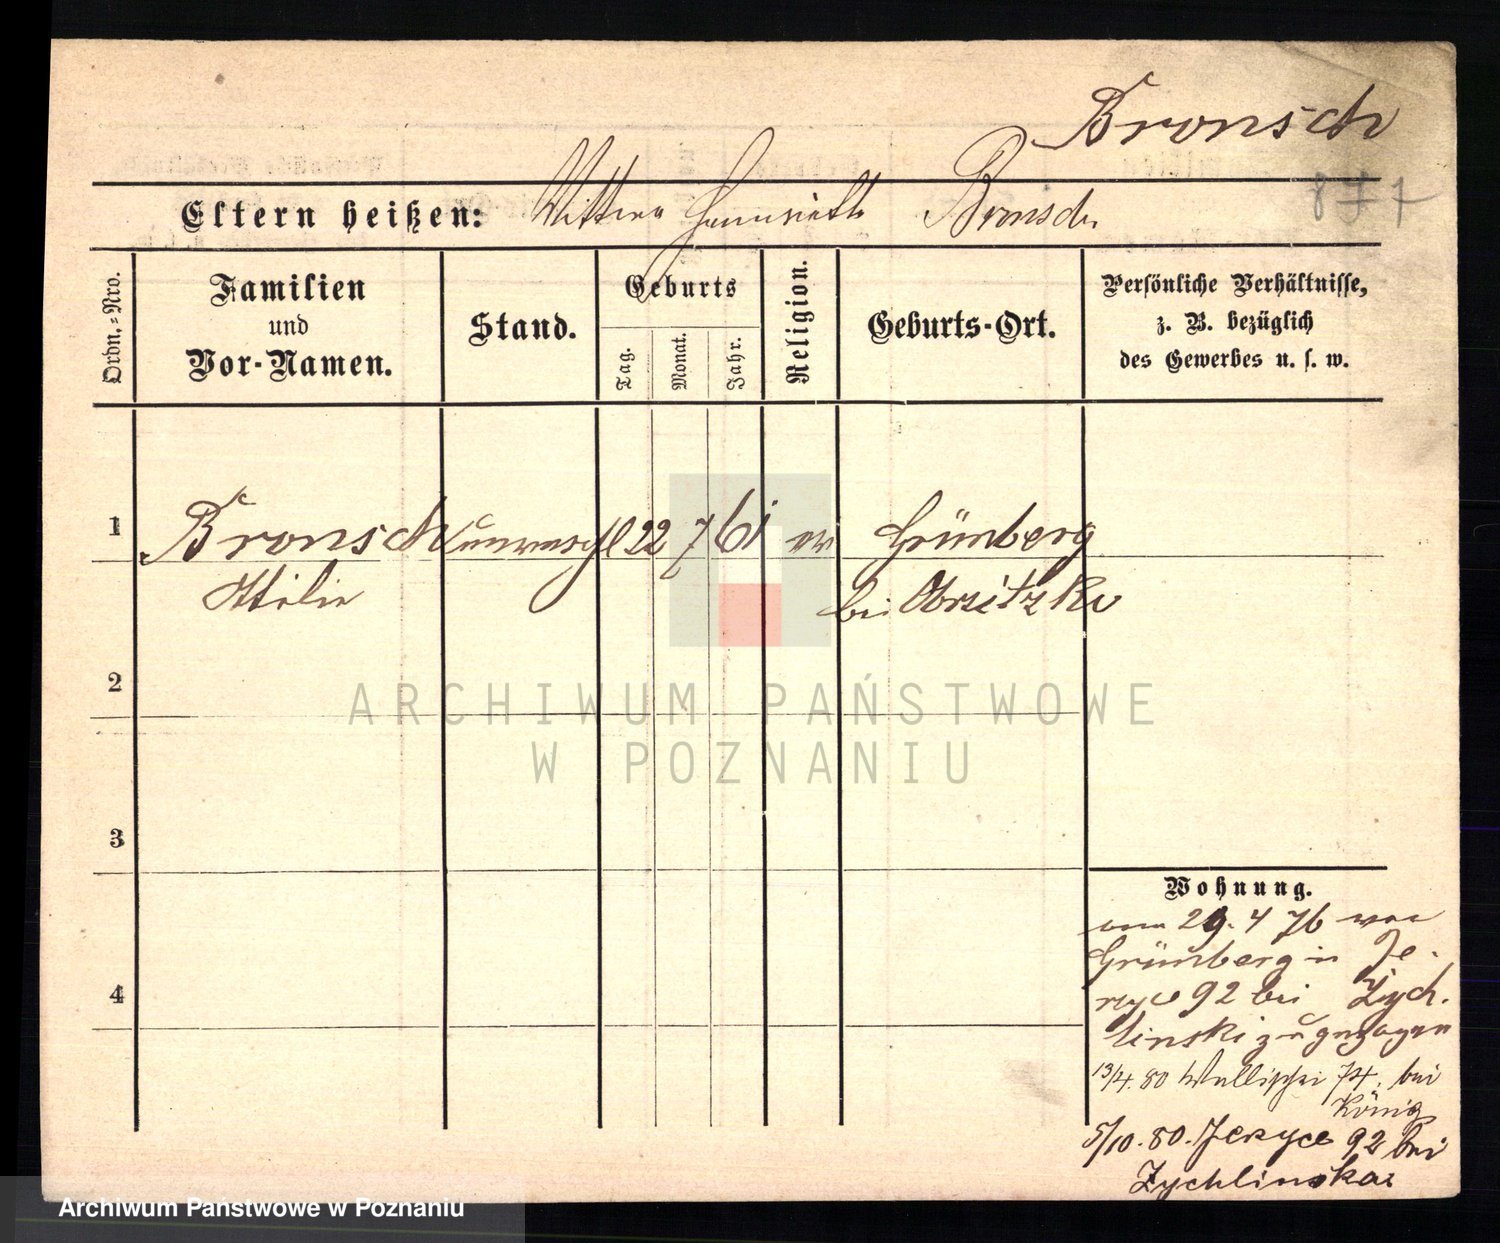 Bronsch
877
Eltern heißen: Wittwe Henriette Bronsch
Ordn.-Nro.
Familien und Vor-Namen.
Stand.
Geburts
Tag.
Monat.
Jahr.
Religion.
Geburts-Ort.
Persönliche Verhältnisse,
z. B. bezüglich
des Gewerbes u. s. w.
1 Bronsch unverehl 22 7 61 ev Grünberg
Ottilie bei Obrsitzko
2
3
4
ARCHIWUM PAŃSTWOWE
W POZNANIU
Wohnung.
am 29. 4 76 von
Grünberg in Je-
rzyce 92 bei Zych-
linski zugezogen
13/4. 80 Wallischei 74. bei
König
5/10. 80. Jerzyce 92 bei
Zychlinska
Archiwum Państwowe w Poznaniu